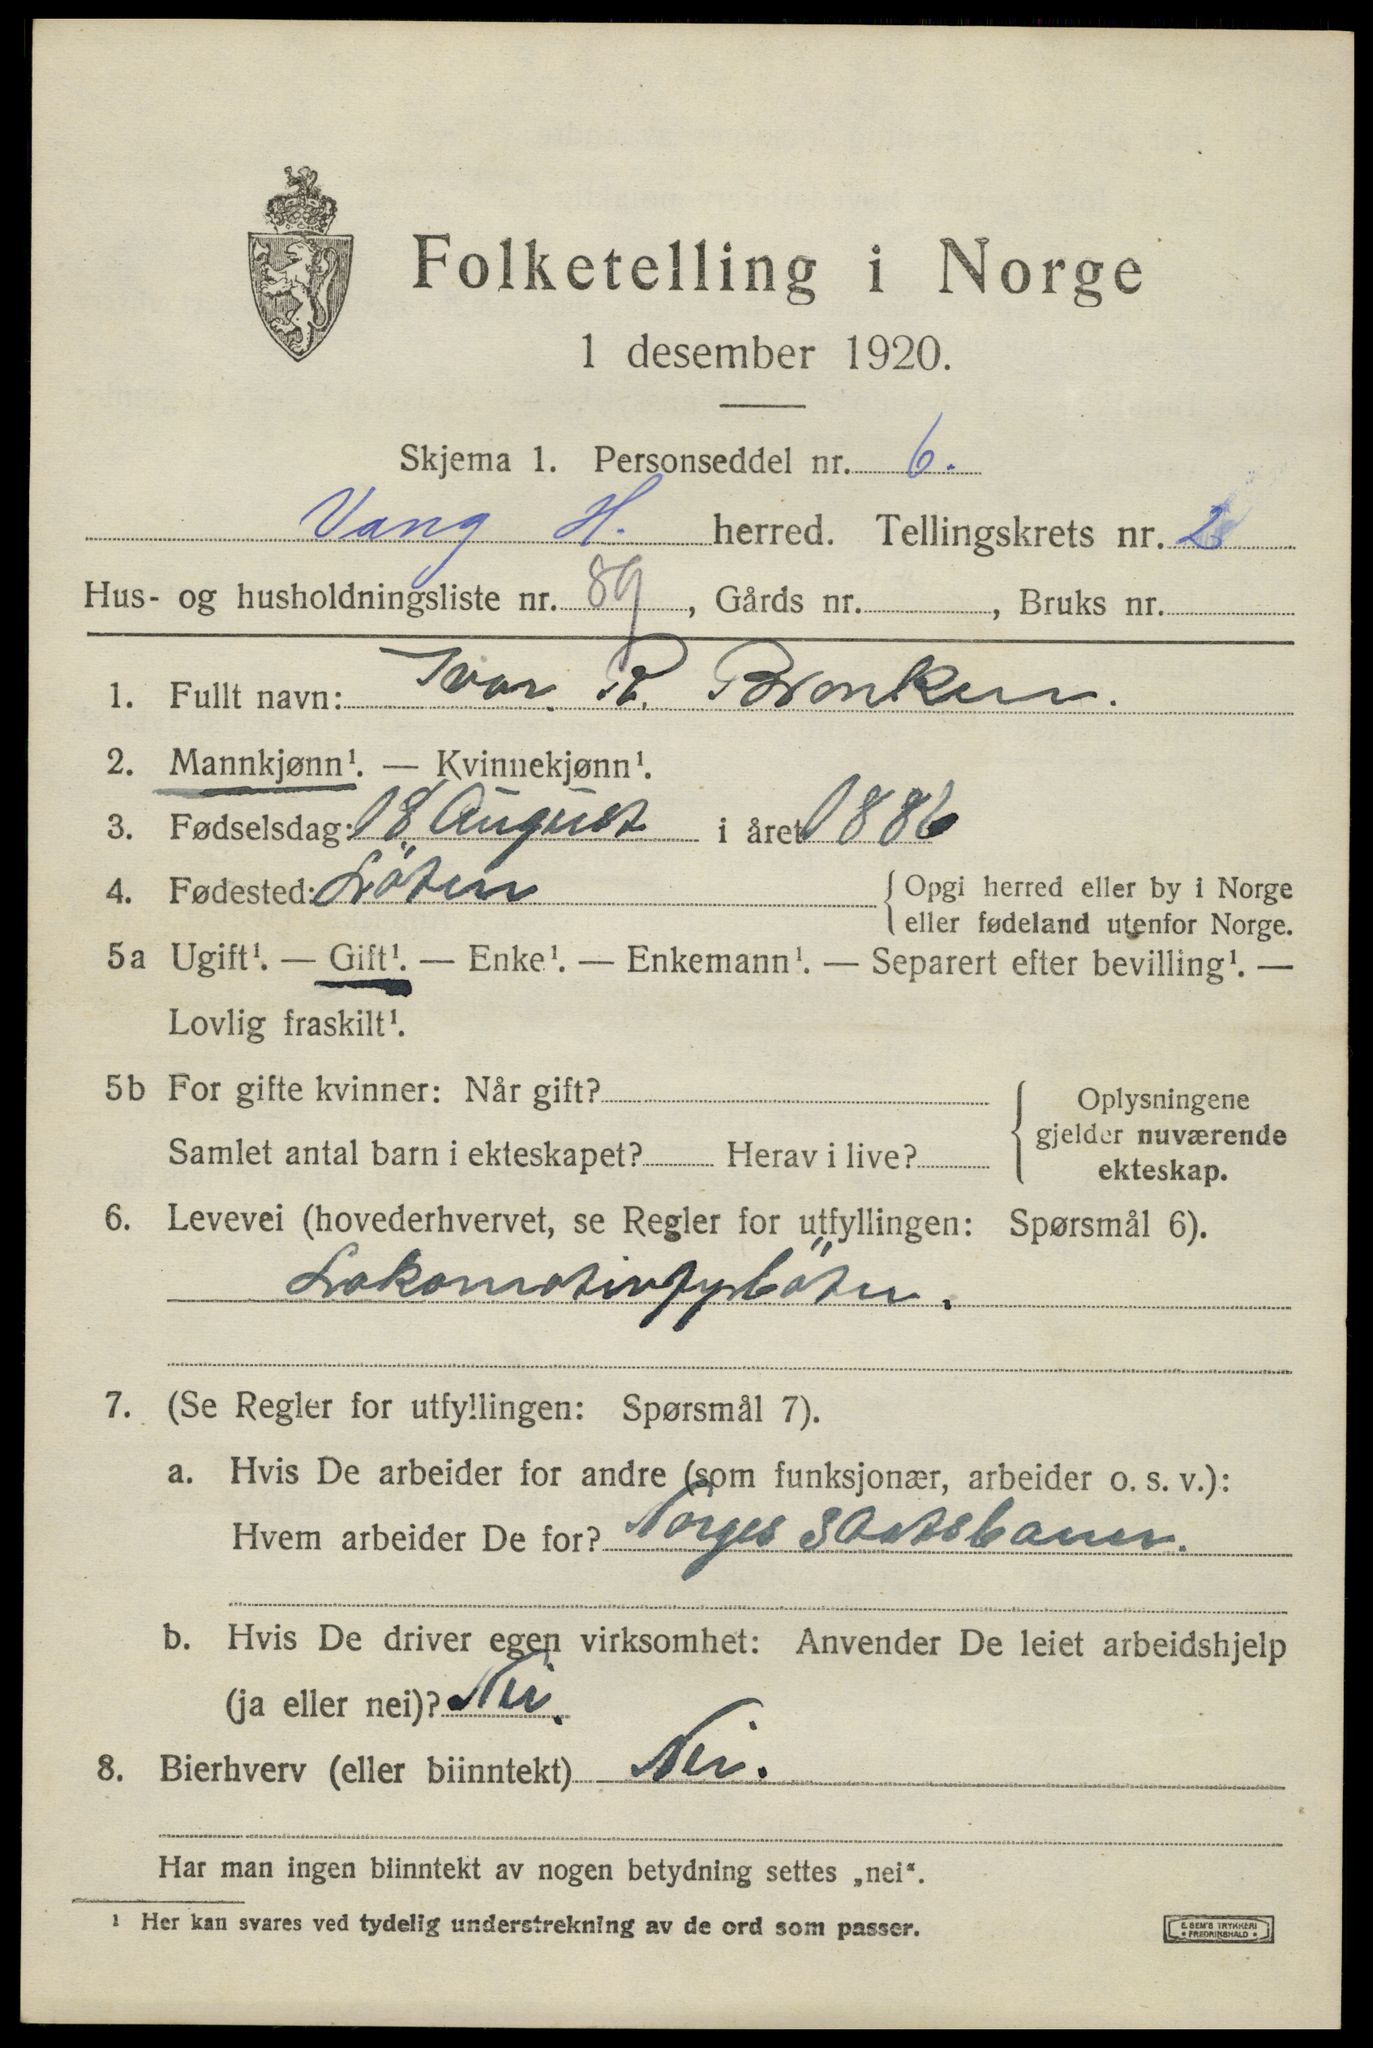 Folketelling i Norge
1 desember 1920.
Skjema 1. Personseddel nr. 6.
Vang H. herred. Tellingskrets nr. 2
Hus- og husholdningsliste nr. 89, Gårds nr. , Bruks nr.
1. Fullt navn: Ivar R. Bronken.
2. Mannkjønn¹. — Kvinnekjønn¹.
3. Fødselsdag: 18 August i året 1886
4. Fødested: Löten { Opgi herred eller by i Norge
eller fødeland utenfor Norge.
5a Ugift¹. — Gift¹. — Enke¹. — Enkemann¹. — Separert efter bevilling¹. —
Lovlig fraskilt¹.
5b For gifte kvinner: Når gift? { Oplysningene
gjelder nuværende
Samlet antal barn i ekteskapet? Herav i live?
ekteskap.
6. Levevei (hovederhvervet, se Regler for utfyllingen: Spørsmål 6).
Lokomotivfyrböter.
7. (Se Regler for utfyllingen: Spørsmål 7).
a. Hvis De arbeider for andre (som funksjonær, arbeider o. s. v.):
Hvem arbeider De for? Norges Statsbaner.
b. Hvis De driver egen virksomhet: Anvender De leiet arbeidshjelp
(ja eller nei)? Nei.
8. Bierhverv (eller biinntekt) Nei.
Har man ingen biinntekt av nogen betydning settes „nei“.
¹ Her kan svares ved tydelig understrekning av de ord som passer.
E. SEM'S TRYKKERI
• FREDRIKSHALD •